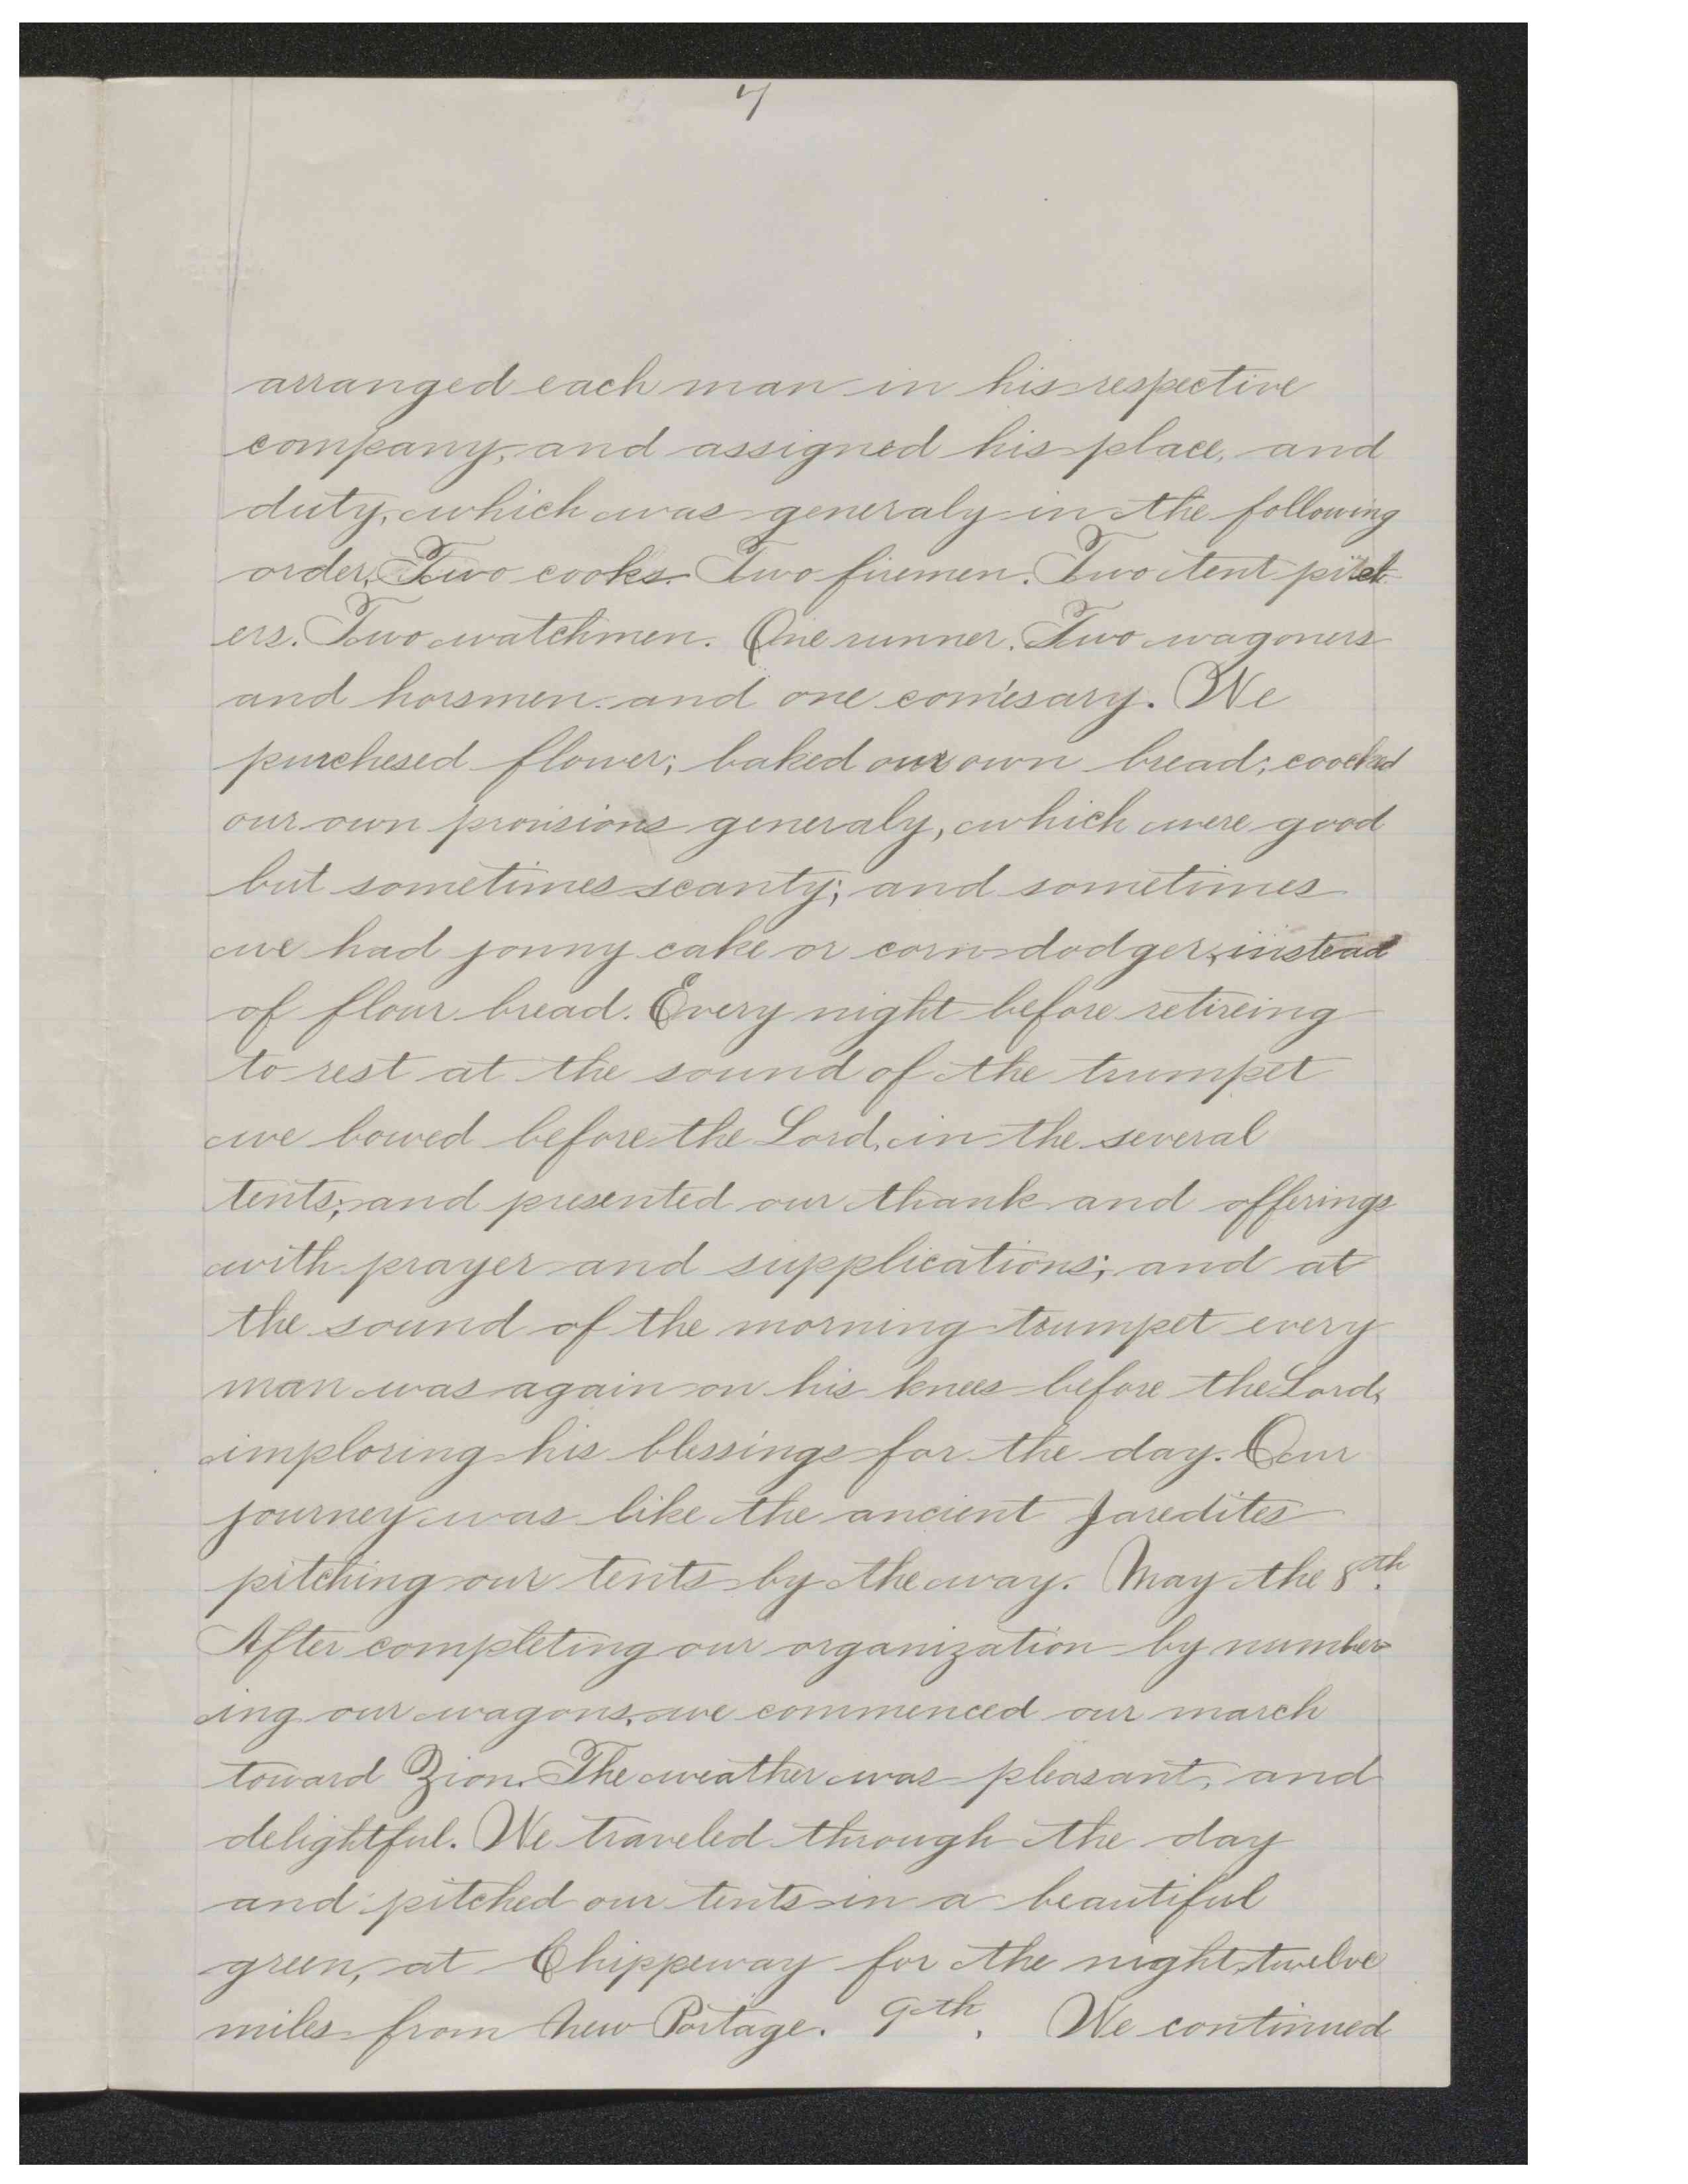 7
arranged each man in his respective
company, and assigned his place, and
duty, which was generaly in the following
order, Two cooks. Two firemen. Two tent pitch
ers. Two watchmen. One runner. Two wagoners
and horsmen. and one comisary. We
purchesed flower; baked our own bread; coocked
our own provisions generaly, which were good
but sometimes scanty; and sometimes
we had jonny cake or corn-dodger, instead
of flour bread. Every night before retireing
to rest at the sound of the trumpet
we bowed before the Lord, in the several
tents; and presented our thank and offerings
with prayer and supplications; and at
the sound of the morning trumpet every
man was again on his knees before the Lord,
imploring his blessings for the day. Our
journey was like the ancient Jaredites
pitching our tents by the way. May the 8th.
After completing our organization by number-
ing our wagons, we commenced our march
toward Zion. The weather was pleasant, and
delightful. We traveled through the day
and pitched our tents in a beautiful
green, at Chippeway for the night, twelve
miles from New Portage. 9th. We continued